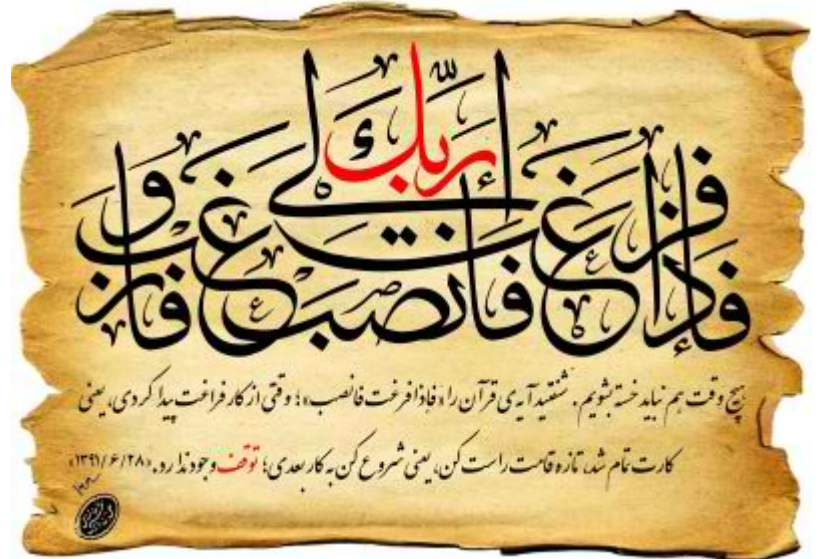 فإذا فرغت فانصب وإلى ربّك فارغب
هیچ وقت هم نباید خسته بشویم. شنفتید آیه‌ی قرآن را «فإذا فرغت فانصب»؛ وقتی از کار فراغت پیدا کردی، یعنی
کارت تمام شد، تازه قامت راست کن، یعنی شروع کن به کار بعدی؛ توقف وجود ندارد. «۱۳۹۱/۶/۲۸»